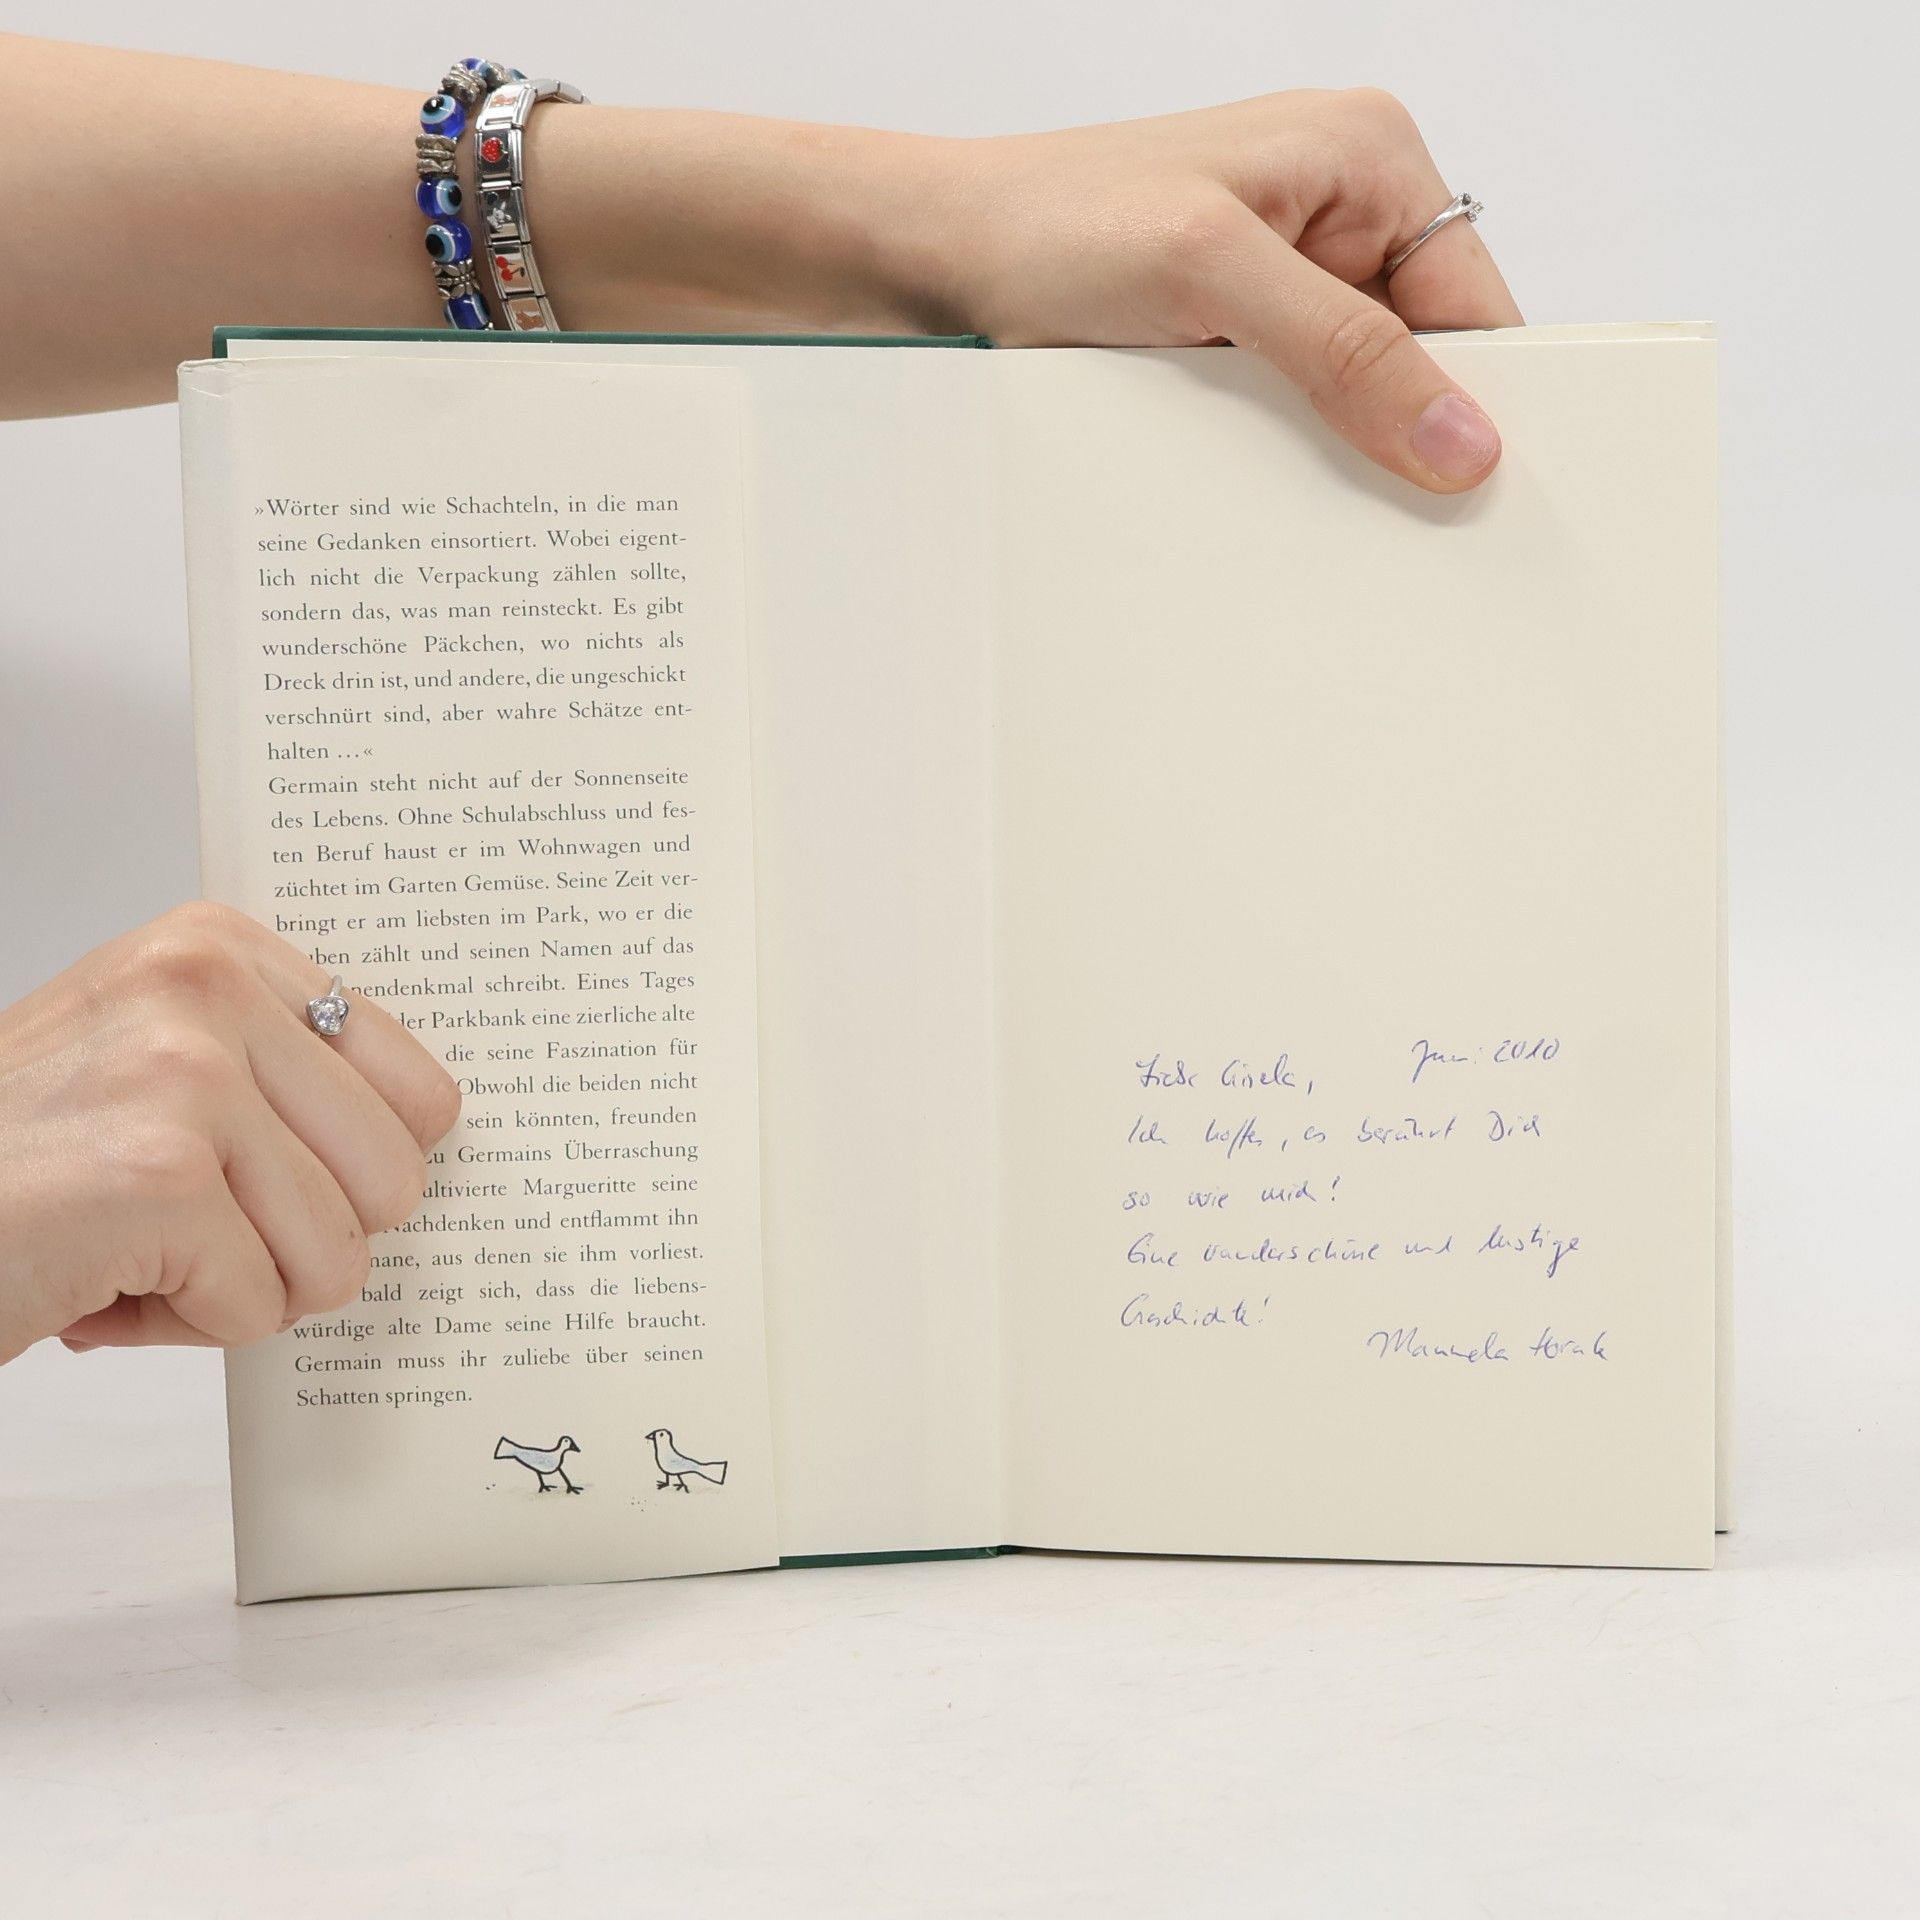 »Wörter sind wie Schachteln, in die man
seine Gedanken einsortiert. Wobei eigent-
lich nicht die Verpackung zählen sollte,
sondern das, was man reinsteckt. Es gibt
wunderschöne Päckchen, wo nichts als
Dreck drin ist, und andere, die ungeschickt
verschnürt sind, aber wahre Schätze ent-
halten …«
Germain steht nicht auf der Sonnenseite
des Lebens. Ohne Schulabschluss und fes-
ten Beruf haust er im Wohnwagen und
züchtet im Garten Gemüse. Seine Zeit ver-
bringt er am liebsten im Park, wo er die
zählt und seinen Namen auf das
schreibt. Eines Tages
der Parkbank eine zierliche alte
die seine Faszination für
Obwohl die beiden nicht
sein könnten, freunden
zu Germains Überraschung
Margueritte seine
Nachdenken und entflammt ihn
aus denen sie ihm vorliest.
bald zeigt sich, dass die liebens-
würdige alte Dame seine Hilfe braucht.
Germain muss ihr zuliebe über seinen
Schatten springen.
Juni 2010
Liebe Gisela,
Ich hoffe, es berührt Dich
so wie mich!
Eine wunderschöne und lustige
Geschichte!
Manuela Horak